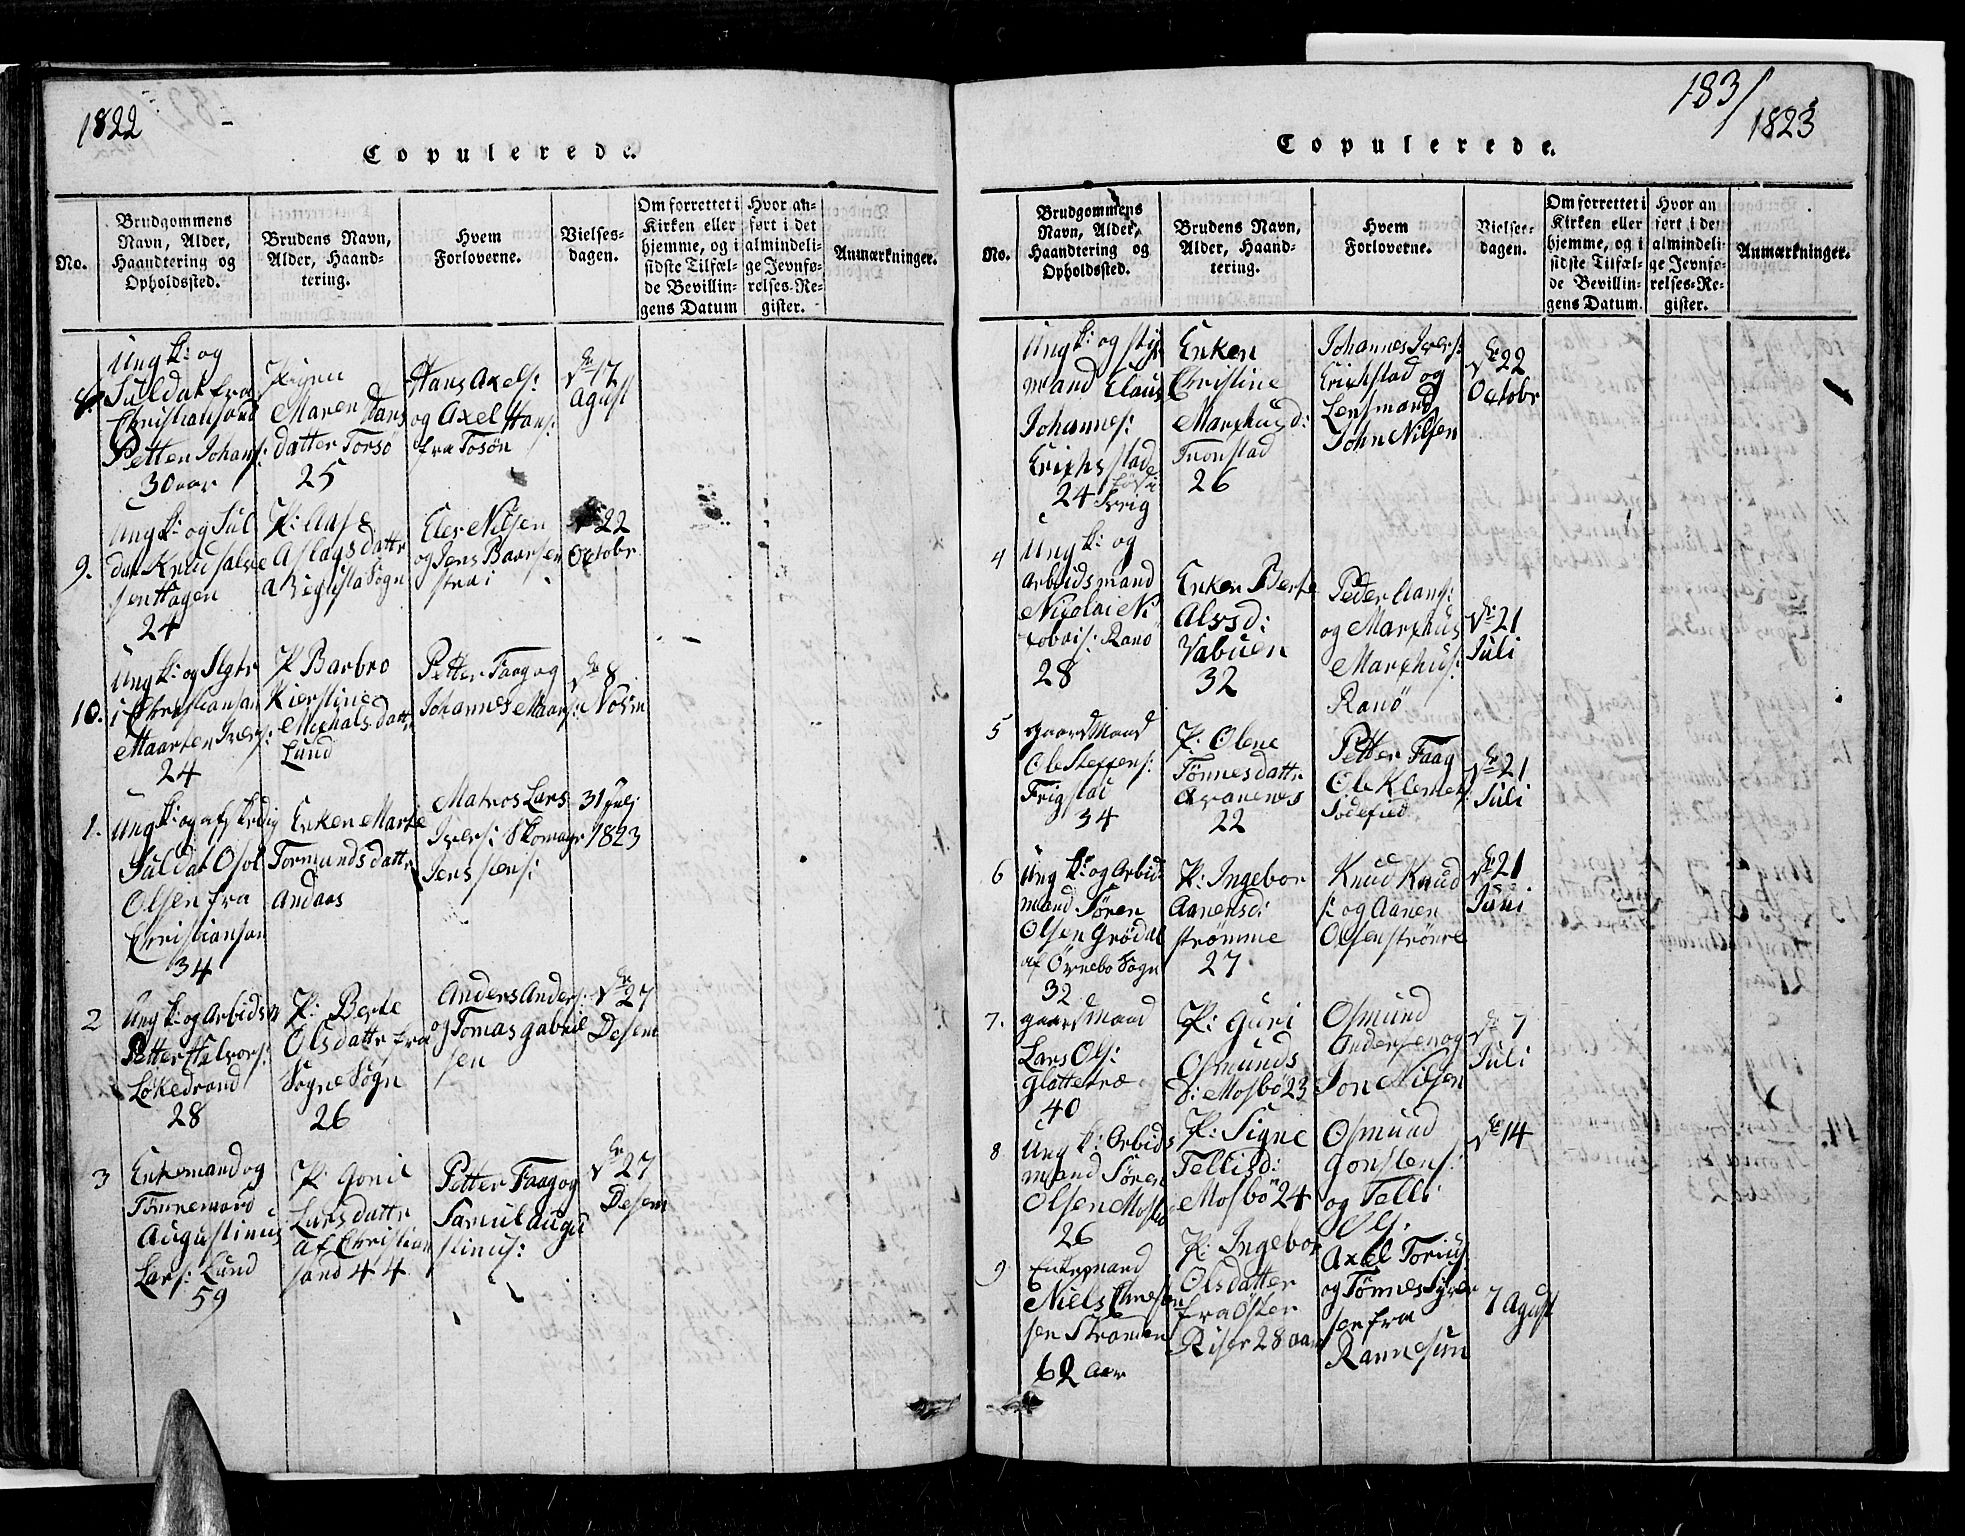 1822
Copulerede.
No.
Brudgommens
Navn, Alder,
Haandtering og
Opholdssted.
Brudens Navn,
Alder, Haand-
tering.
Hvem
Forloverne.
Vielses-
dagen.
Om forrettet i
Kirken eller
hjemme, og i
sidste Tilfæl-
de Bevillin-
gens Datum
Hvor an-
ført i det
almindeli-
ge Jevnfø-
relses-Re-
gister.
Anmærkninger.
8.
Ung k: og
Suldat fra
Christiansand
Petten Johans:
30 aar
Pigen
Maren Hans
datter Torsø
25
Hans Axels:
og Axel Hans:
fra Tosøn
d 17
Agust
9.
Ung k: og Sul
dat Knud Halve
sen Hagen
24
P: Aase
Aslagsdattr
a Sogn
Eler Nilsen
og Jens Baarsen
strai
d 22
Octobr
10.
Ung k: og
i Christiansan
Maarten Ivers:
24
P Barbro
Kierstine
Michalsdattr
Lund
Petter Faag og
Johannes Maars:
d 8
Novm
1.
Ung k: og afskedig
Suldat Osol
Olsen fra
Christiansan
34
Enken Marte
Tormundsdattr
Andaas
Matros Lars
Ivers: Skomagr
Jenssens:
31 Juli
1823
2
Ung k: og Arbidsm
Petter Halvors:
Løkedrand
28
P: Berte
Olsdatter fra
Sogne Sogn
26
Anders Anders:
og Tomas Gabriel
sen
d 27
Desem
3
Enkemand og
Tømmermand
Augustinus
Lars: Lund
59
P: Gonil
Larsdattr
af Christian
sand 44
Petter Faag og
Samuel Augu
stinus:
d 27
Desem
183/
1823
Copulerede.
No.
Brudgommens
Navn, Alder,
Haandtering og
Opholdssted.
Brudens Navn,
Alder, Haand-
tering.
Hvem
Forloverne.
Vielses-
dagen.
Om forrettet i
Kirken eller
hjemme, og i
sidste Tilfæl-
de Bevillin-
gens Datum.
Hvor an
ført i det
almindeli-
ge Jevnfø-
relses-Re-
gister.
Anmærkninger.
Ung k: og styr
mand Claus
Johannes:
Erichsstad
24
Enken
Christine
Marchusd:
Tronstad
26
Johannes Ivers:
Erichstad og
Lensmand
John Nilsen
d 22
Octobr
4
Ung k: og
Arbeidsmand
Nicolai Ni
: Ranø
28
Enken Berte
Alvsd:
Vabuen
32
Peder Hans:
og Marchus
Marchus:
Ranø
d 21
Juli
5
Gaardmand
Ole Steffens:
Frigstad
34
P: Olene
Tønnesdattr
22
Petter Faag
Ole Klemet
Sodefied
d 21
Juli
6
Ung k: og Arbid
mand Søren
Olsen Grødal
af Øvrebo Sogn
32
P: Ingebor
Aanensd:
Strømme
27
Knud Knud
s: og Aanen
Olsen Strømme
d 21
Juni
7.
Gaardmand
Lars Ols:
Glattetræ
40
P: Guri
Osmunds
d: Mosbö 23
Osmund
Andersen og
Jon Nilsen
d 7
Juli
8
Ung k: Arbids
mand Søren
Olsen Mosbø
26
P: Signe
Tellisd:
Mosbö 24
Osmund
Gonstens:
og Telli
Ols:
d 14
9
Enkemand
Niels Christen
sen Stranden
62 aar
P: Ingebor
Olsdatter
fra Øster
Risør 28 aar
Axel Torius
og Tønnes Syver
sen fra
Rannesun
7 Agust